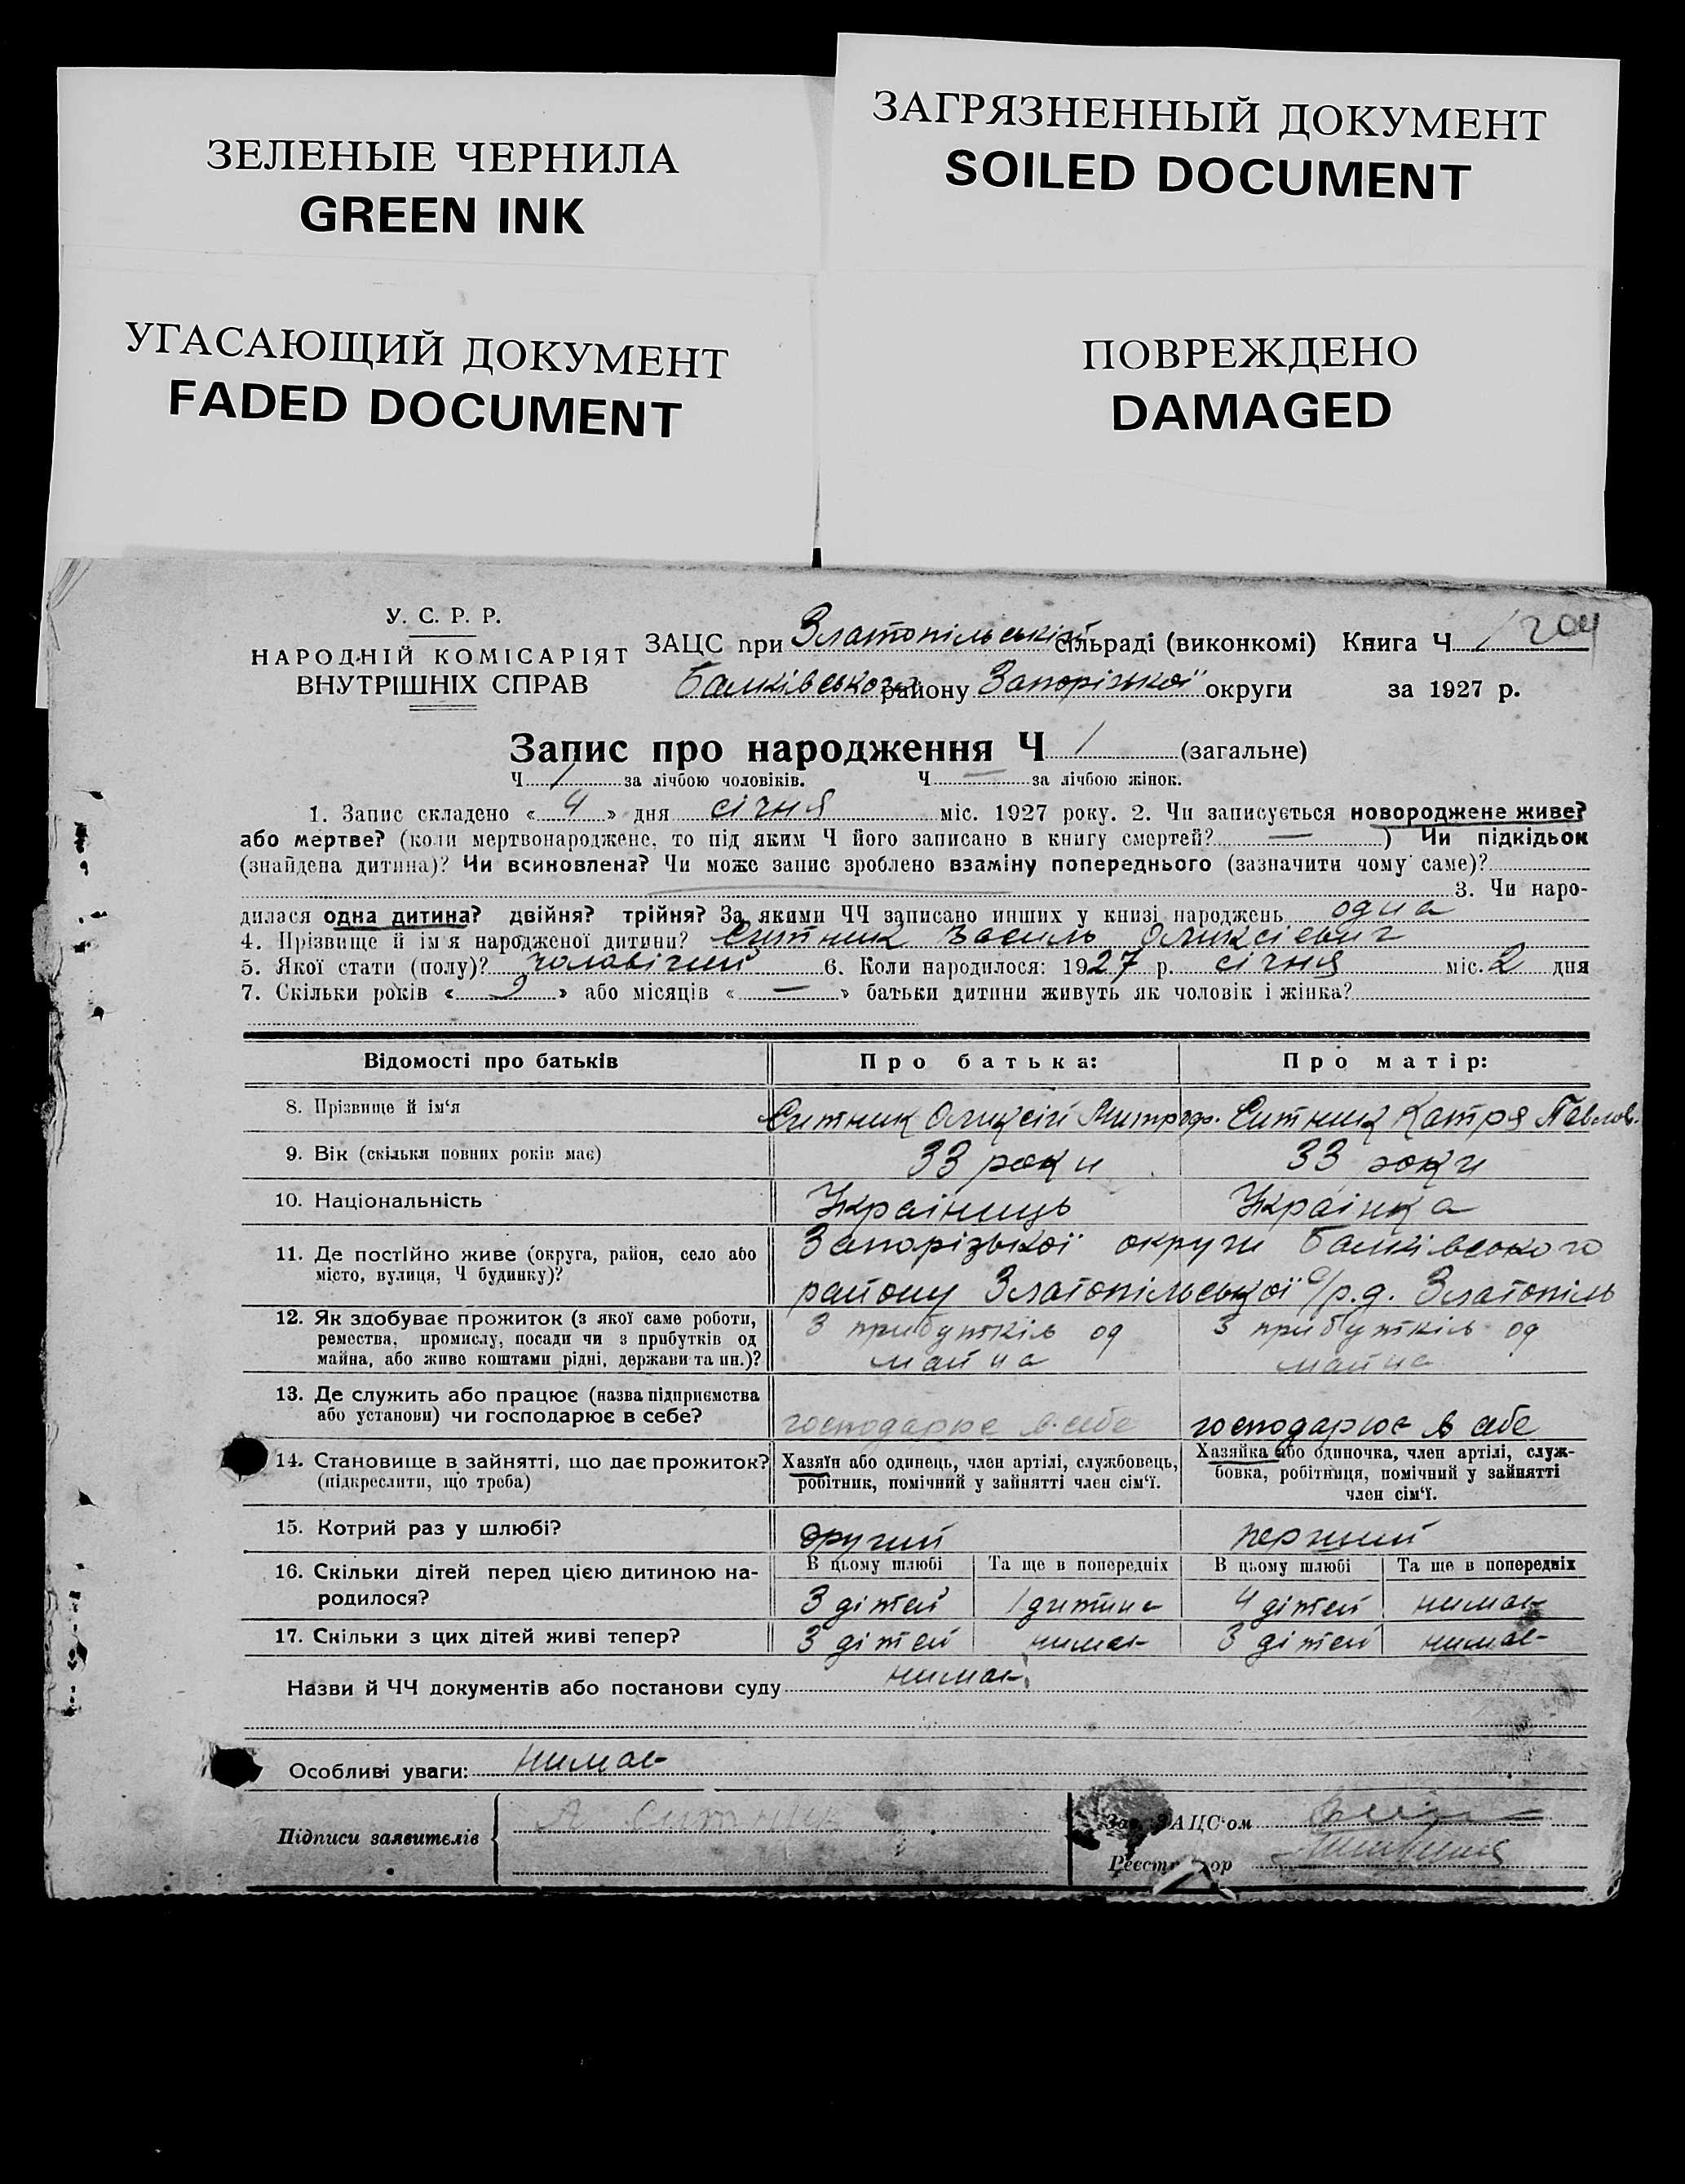 ЗЕЛЕНЫЕ ЧЕРНИЛА
GREEN INK
ЗАГРЯЗНЕННЫЙ ДОКУМЕНТ
SOILED DOCUMENT
УГАСАЮЩИЙ ДОКУМЕНТ
FADED DOCUMENT
ПОВРЕЖДЕНО
DAMAGED
У. С. Р. Р.
НАРОДНІЙ КОМІСАРІЯТ
ВНУТРІШНІХ СПРАВ
204
ЗАЦС при Златопільській сільраді (виконкомі) Книга Ч 1
Балківського району Запорізької округи за 1927 р.
Запис про народження Ч 1 (загальне)
Ч 1 за лічбою чоловіків. Ч — за лічбою жінок.
1. Запис складено « 4 » дня січня міс. 1927 року. 2. Чи записується новороджене живе?
або мертве? (коли мертвонароджене, то під яким Ч його записано в книгу смертей? — ) Чи підкідьок
(знайдена дитина)? Чи всиновлена? Чи може запис зроблено взаміну попереднього (зазначити чому саме)?
3. Чи наро-
дилася одна дитина? двійня? трійня? За якими ЧЧ записано инших у книзі народжень одна
4. Прізвище й ім'я народженої дитини? Ситник Василь Оликсієвич
5. Якої стати (полу)? чоловічий 6. Коли народилося: 1927 р. січня міс. 2 дня
7. Скільки років « 9 » або місяців « — » батьки дитини живуть як чоловік і жінка?
Відомості про батьків Про батька: Про матір:
8. Прізвище й ім'я Ситник Оликсій Митроф. Ситник Катря Павлов.
9. Вік (скільки повних років має) 33 роки 33 роки
10. Національність Українець Українка
11. Де постійно живе (округа, район, село або Запорізької округи Балківського
місто, вулиця, Ч будинку)? району Златопільської с/р. д. Златопіль
12. Як здобуває прожиток (з якої саме роботи, З прибутків од З прибутків од
ремества, промислу, посади чи з прибутків од майна майна
майна, або живе коштами рідні, держави та ин.)?
13. Де служить або працює (назва підприємства
або установи) чи господарює в себе? господарює в себе господарює в себе
14. Становище в зайнятті, що дає прожиток? Хазяїн або одинець, член артілі, службовець, Хазяйка або одиночка, член артілі, служ-
(підкреслити, що треба) робітник, помічний у зайнятті член сім'ї. бовка, робітниця, помічний у зайнятті
член сім'ї.
15. Котрий раз у шлюбі? другий перший
16. Скільки дітей перед цією дитиною на- В цьому шлюбі Та ще в попередніх В цьому шлюбі Та ще в попередніх
родилося? 3 дітей 1 дитина 4 дітей нимає
17. Скільки з цих дітей живі тепер? 3 дітей нимає 3 дітей нимає
Назви й ЧЧ документів або постанови суду нимає
Особливі уваги: нимає
Підписи заявителів А Ситник Зав. ЗАЦС'ом
Реєстратор